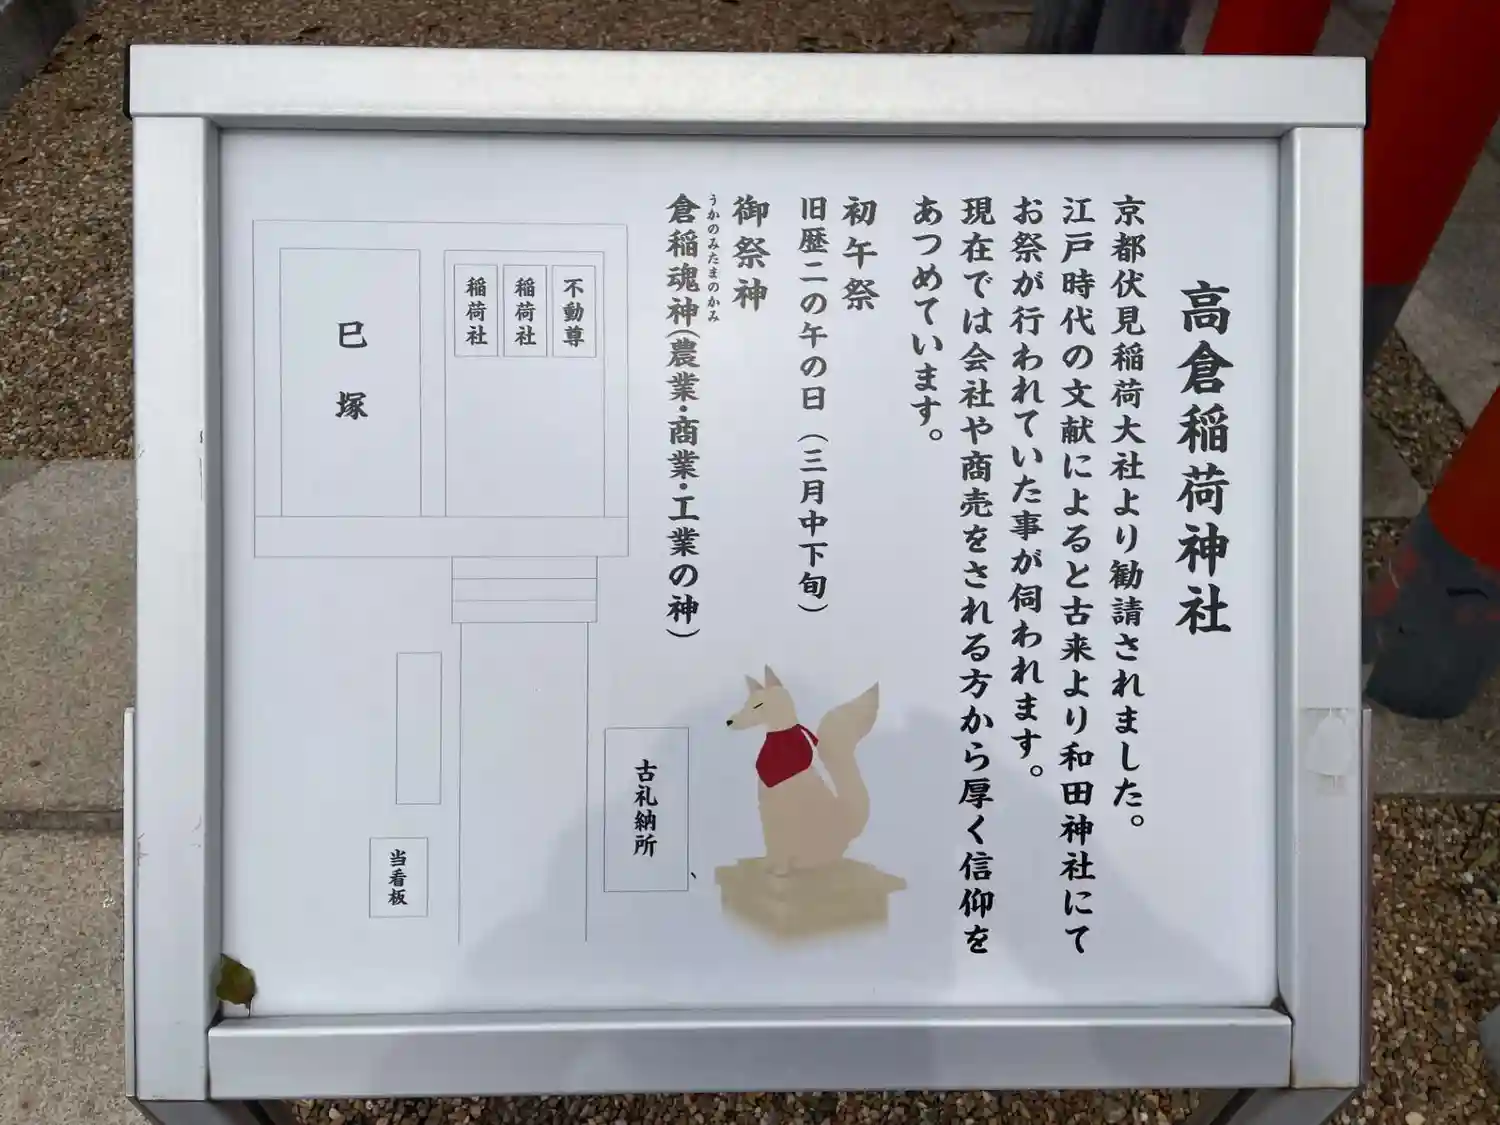 高倉稲荷神社
京都伏見稲荷大社より勧請されました。
江戸時代の文献によると古来より和田神社にて
お祭が行われていた事が伺われます。
現在では会社や商売をされる方から厚く信仰を
あつめています。
初午祭
旧歴二の午の日（三月中下旬）
御祭神
うかのみたまのかみ
倉稲魂神（農業・商業・工業の神）
不動尊
稲荷社
稲荷社
巳塚
古礼納所
当看板